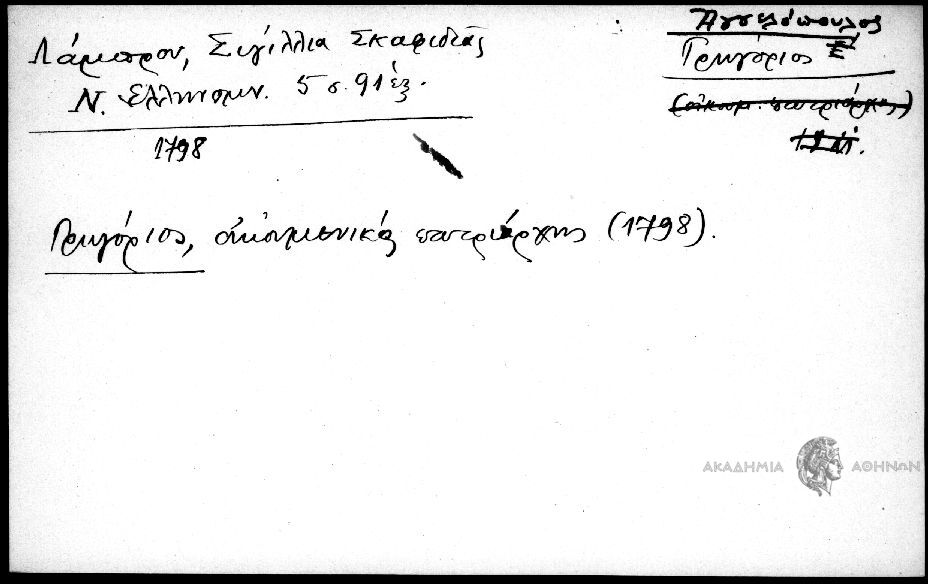 Λάμπρου, Σιγίλλια Σκαφιδιᾶς
Ν. Ἑλληνομν. 5 σ. 91 ἑξ.
1798
Ἀγγελόπουλος
Γρηγόριος Ε'
(οἰκουμ. πατριάρχης)
Γρηγόριος, οἰκουμενικός πατριάρχης (1798).
ΑΚΑΔΗΜΙΑ ΑΘΗΝΩΝ